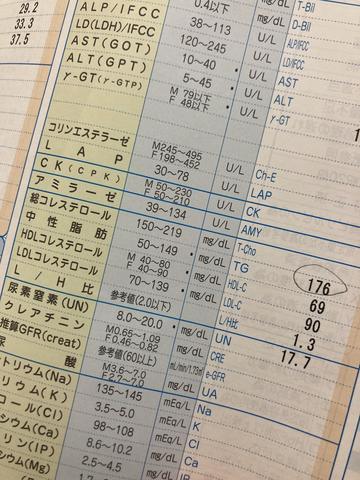 29.2
33.3
37.5
0.4以下 mg/dL T-Bil
mg/dL D-Bil
ALP/IFCC 38～113 U/L ALP/IFCC
LD(LDH)/IFCC 120～245 U/L LD/IFCC
AST(GOT) 10～40 U/L AST
ALT(GPT) 5～45 U/L ALT
γ-GT(γ-GTP) M 79以下 F 48以下 U/L γ-GT
コリンエステラーゼ M245～495 F198～452 U/L Ch-E
LAP 30～78 U/L LAP
CK(CPK) M 50～230 F 50～210 U/L CK
アミラーゼ 39～134 U/L AMY
総コレステロール 150～219 mg/dL T-Cho
中性脂肪 50～149 mg/dL TG 176
HDLコレステロール M 40～80 F 40～90 mg/dL HDL-C 69
LDLコレステロール 70～139 mg/dL LDL-C 90
L/H比 参考値(2.0以下) L/H比 1.3
尿素窒素(UN) 8.0～20.0 mg/dL UN 17.7
クレアチニン M0.65～1.09 F0.46～0.82 mg/dL CRE
推算GFR(creat) 参考値(60以上) mL/min/1.73㎡ e-GFR
尿酸 M3.6～7.0 F2.7～7.0 mg/dL UA
トリウム(Na) 135～145 mEq/L Na
リウム(K) 3.5～5.0 mEq/L K
ロール(Cl) 98～108 mEq/L Cl
シウム(Ca) 8.6～10.2 mg/dL Ca
リン(IP) 2.5～4.5 mg/dL
シウム(Mg)